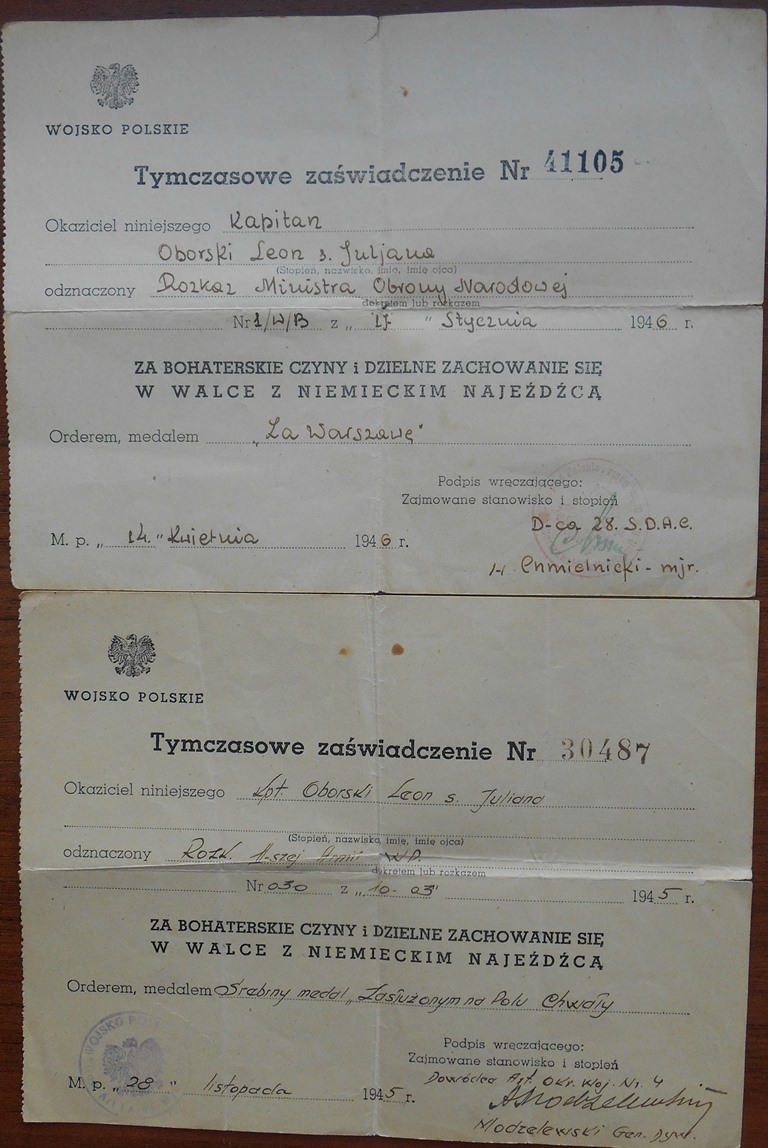 WOJSKO POLSKIE
Tymczasowe zaświadczenie Nr 41105
Okaziciel niniejszego Kapitan
Oborski Leon s. Juljana
(Stopień, nazwisko, imię, imię ojca)
odznaczony Rozkaz Ministra Obrony Narodowej
dekretem lub rozkazem
Nr 1/W/B z „ 17 " Stycznia 1946 r.
ZA BOHATERSKIE CZYNY i DZIELNE ZACHOWANIE SIĘ
W WALCE Z NIEMIECKIM NAJEŹDŹCĄ
Orderem, medalem „Za Warszawę"
Podpis wręczającego:
Zajmowane stanowisko i stopień
D-ca 28. S.D.A.C.
M. p. „ 14. " Kwietnia 1946 r.
/-/ Chmielnicki - mjr.
WOJSKO POLSKIE
Tymczasowe zaświadczenie Nr 30487
Okaziciel niniejszego kpt. Oborski Leon s. Juliana
(Stopień, nazwisko, imię, imię ojca)
odznaczony Rozk. Armii WP.
dekretem lub rozkazem
Nr 030 z „ 10-03" 1945 r.
ZA BOHATERSKIE CZYNY i DZIELNE ZACHOWANIE SIĘ
W WALCE Z NIEMIECKIM NAJEŹDŹCĄ
Orderem, medalem Srebrny medal „Zasłużonym na Polu Chwały
Podpis wręczającego:
Zajmowane stanowisko i stopień
Dowódca Art. Okr. Woj. Nr. 4
M. p. „ 28 " listopada 1945 r.
Modzelewski Gen. Dyw.